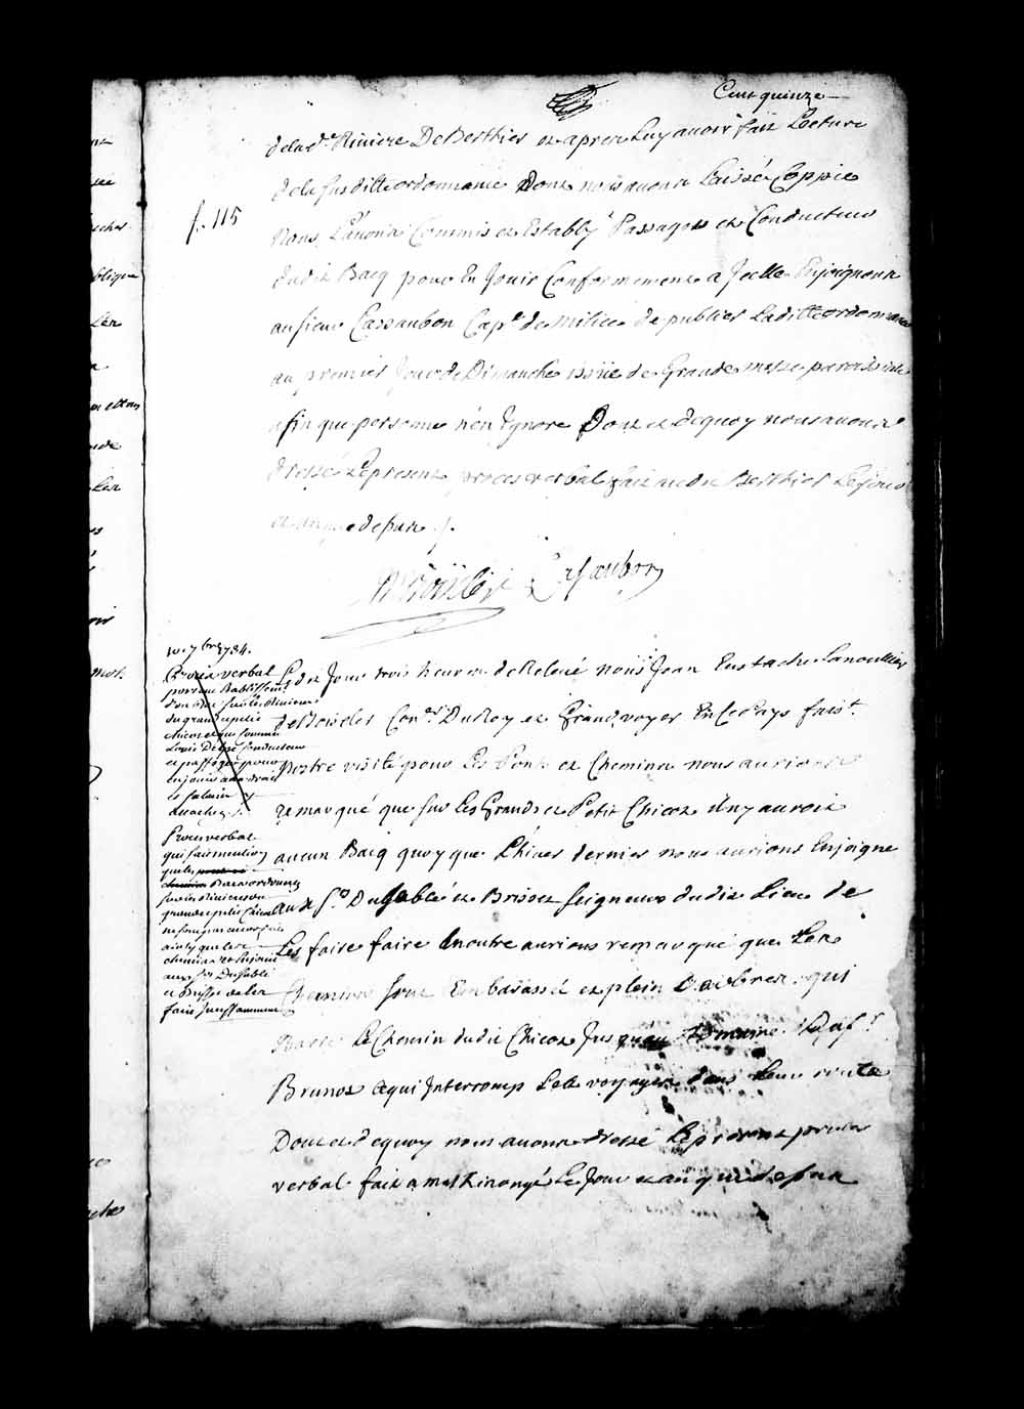 Cent quinze
f. 115
de lad.e Riviere De Berthier et apres Luy avoir fait Lecture
de la susditte ordonnance Dont nous avons Laissé Coppie
Nous L'avons Commis et Estably Passager et Conducteur
dudit Bacq pour En Jouir Conformement a Jcelle Enjoignons
au sieur Cassaubon Cap.e de milice de publier Laditte ordonnance
au premier Jour de Dimanche issüe de Grande messe paroissialle
afin que personne n'en Ignore Dont et dequoy nous avons
dressé Le present proces verbal fait audit Berthier Les jour
et an que depar
Casaubon
10. 7bre 1734.
Procès verbal
portant Etablissem.t
d'un Bac sur les Rivieres
du grand et petit
chicot et qui Commet
Louis Conducteur
et passager pour
en jouir aux droits
et salaires
attachez
Procès verbal
qui fait mention
que les
chemins Bacs ordonnez
sur les Rivieres du
grand et petit Chicot
ne sont pas encore faits
ainsy que les
chemins et Enjoint
aux Srs Dusablé
et Brisset de les
faire Jncessamment
Led.t Jour trois heures de Relevé nous Jean Eustache Lanoullier
de Boisclerc Con.er Du Roy et Grand voyer En Ce Pays fais.t
Nostre visite pour Les Ponts et Chemins nous aurions
remarqué que sur Les Grand et Petit Chicot il n'y avoit
aucun Bacq quoy que L'hiver dernier nous aurions Enjoigne
aux S.rs Dusablé et Brisset seigneurs dudit Lieu de
Les faire faire En outre aurions remarqué que Les
Chemins sont Embarassé et plein D'arbres qui
Barre Le Chemin dudit Chicot Jusqu'au Domaine
Brunot ce qui Jnterromp Les voyagers dans Leur route
Dont et dequoy nous avons dressé Le present proces
verbal fait a maskinongé Le Jour et an que depar